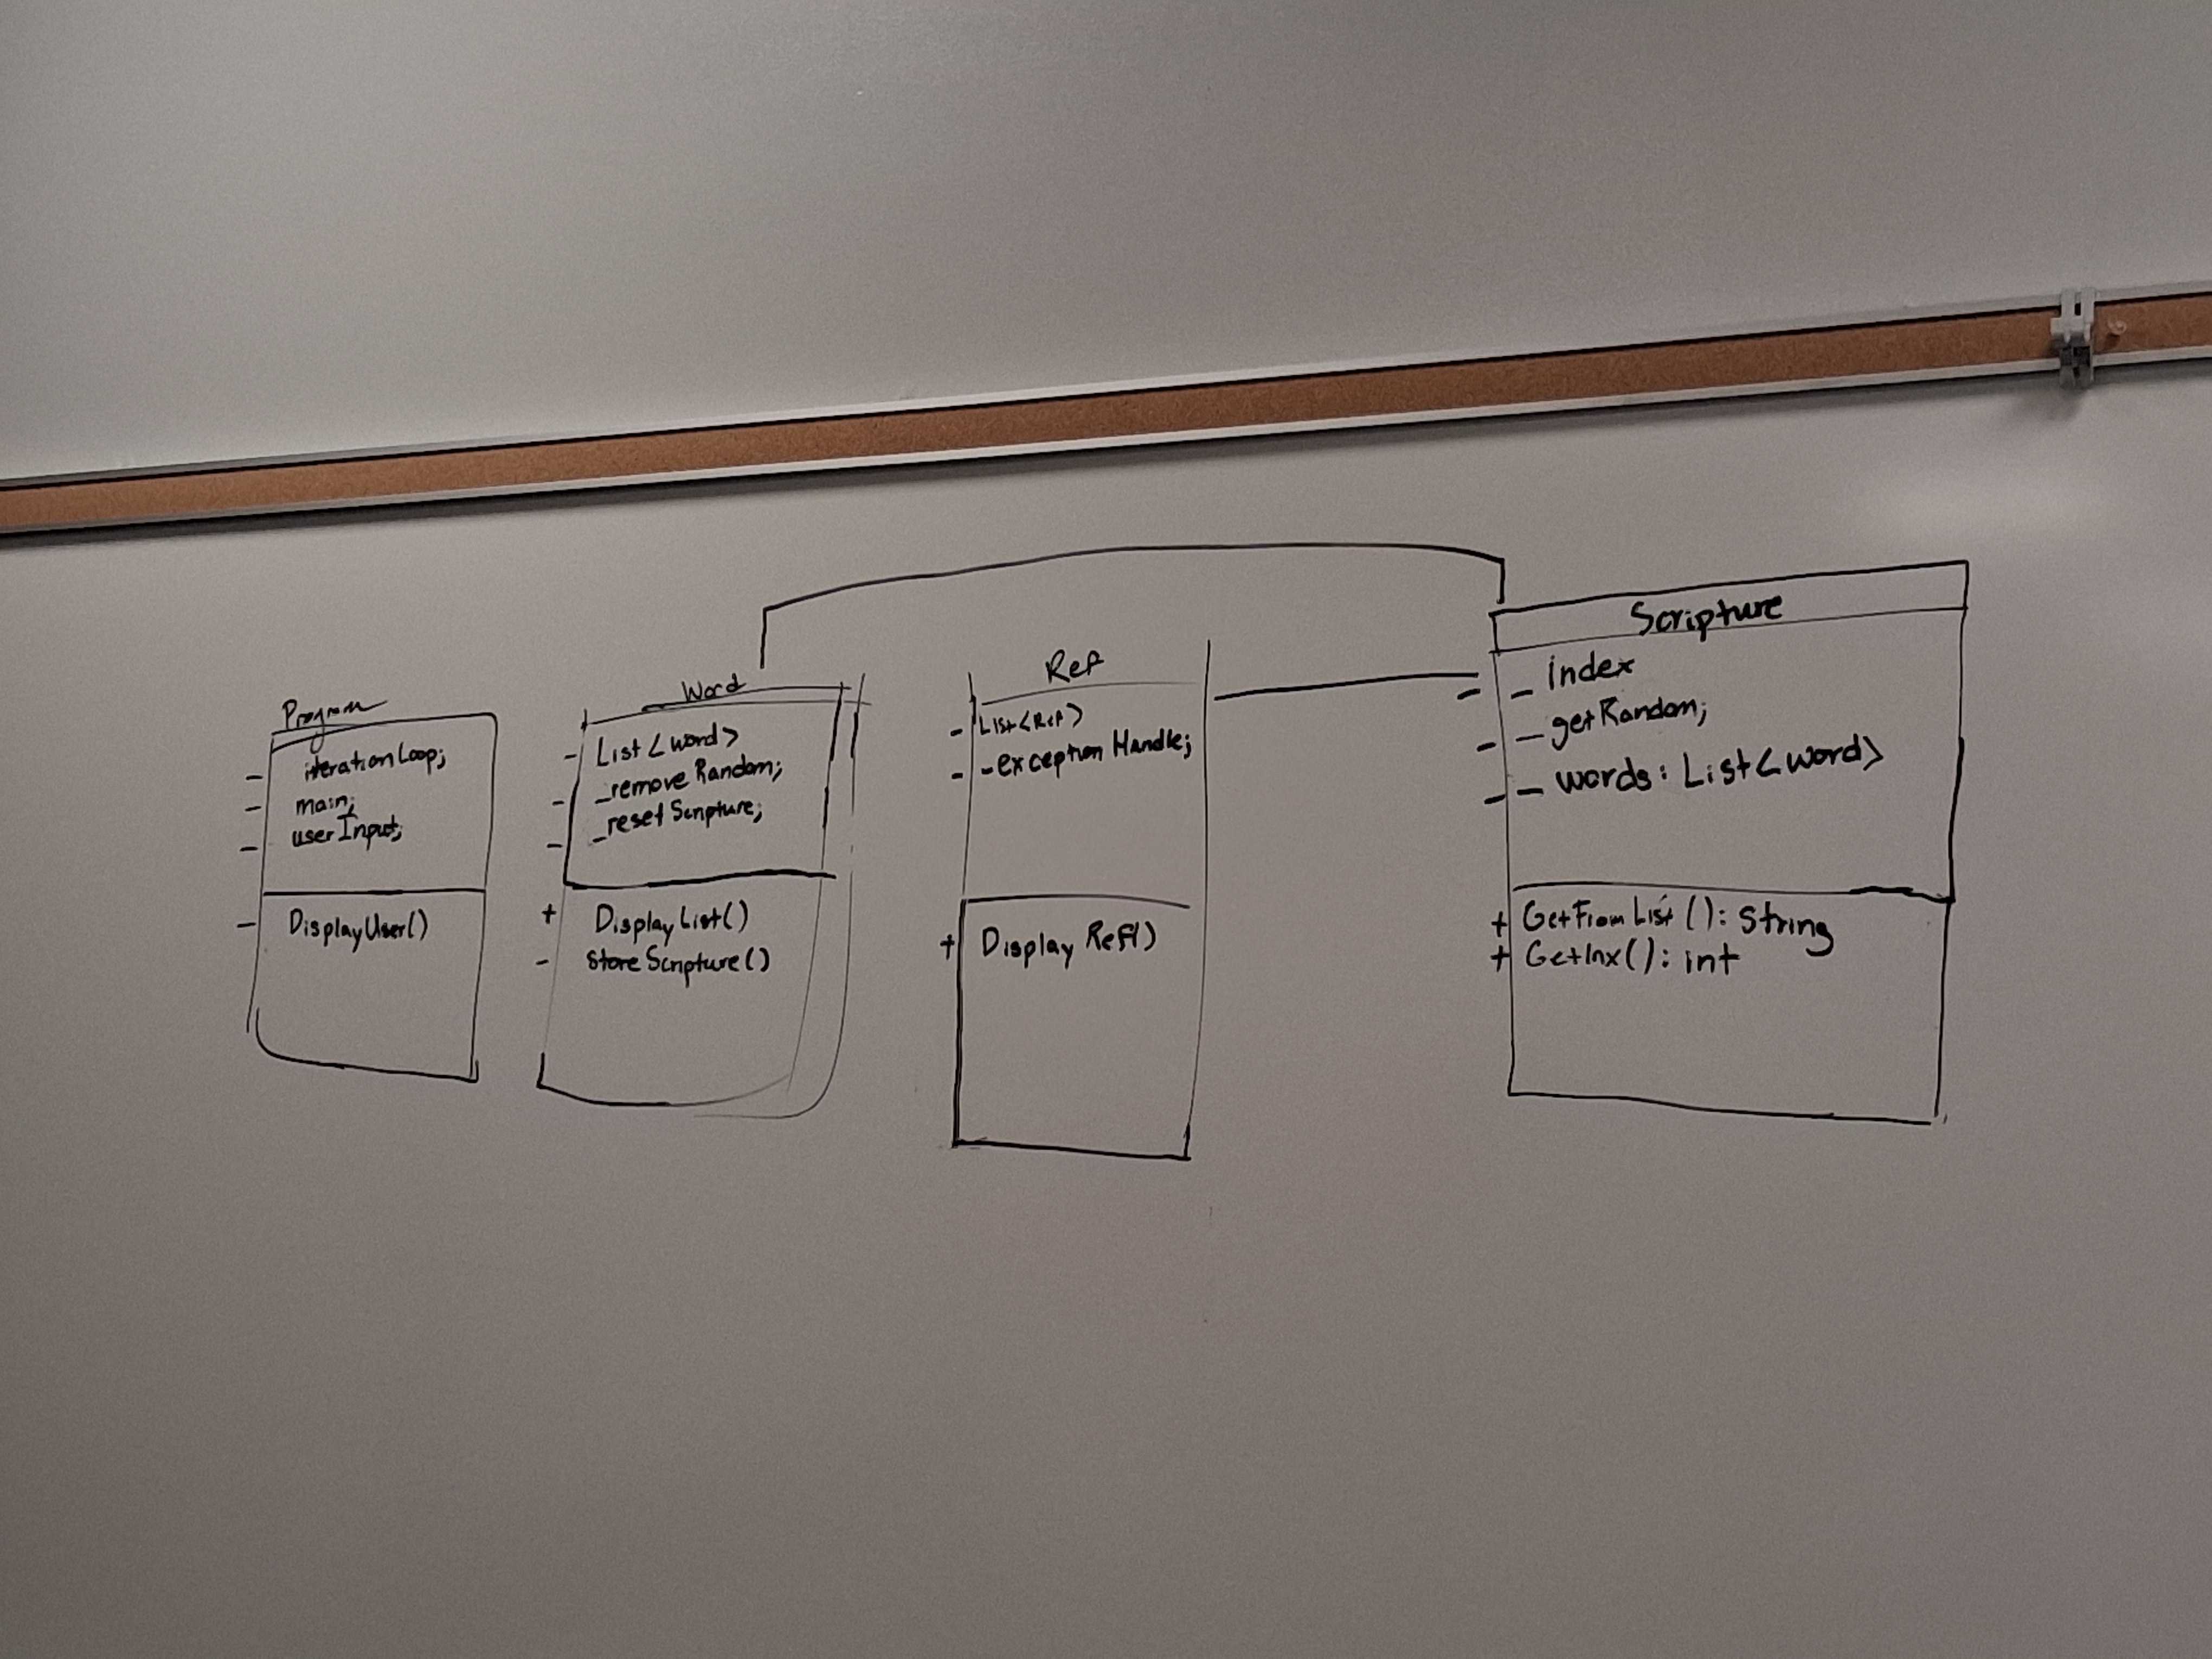 Program
- iterationLoop;
- main;
- userInput;
- DisplayUser()
Word
- List<word>
- _removeRandom;
- _resetScripture;
+ DisplayList()
- storeScripture()
Ref
- List<Ref>
- -exception Handle;
+ Display Ref()
Scripture
- _index
- _getRandom;
- _words: List<word>
+ GetFromList(): string
+ GetInx(): int